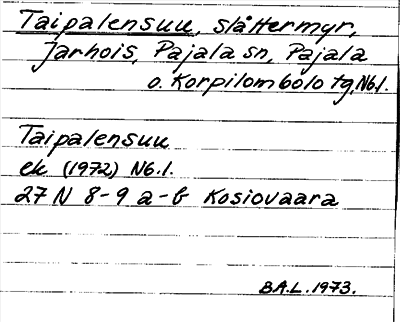 Taipalensuu, slåttermyr,
Jarhois, Pajala sn, Pajala
o. Korpilombolo tg, Nb.l.
Taipalensuu
ek (1972) Nb.l.
27 N 8-9 a-b Kosiovaara
B.A.L. 1973.